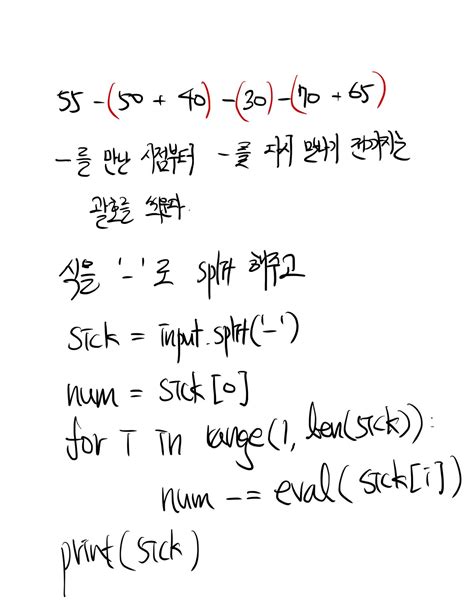 55 -(50 + 40) -(30)-(70 + 65)
-를 만난 시점부터 -를 다시 만나기 전까지는
괄호를 씌운다.
식을 '-'로 split 해주고
sick = input.split('-')
num = sick[0]
for i in range(1, len(sick)):
num -= eval(sick[i])
print(sick)